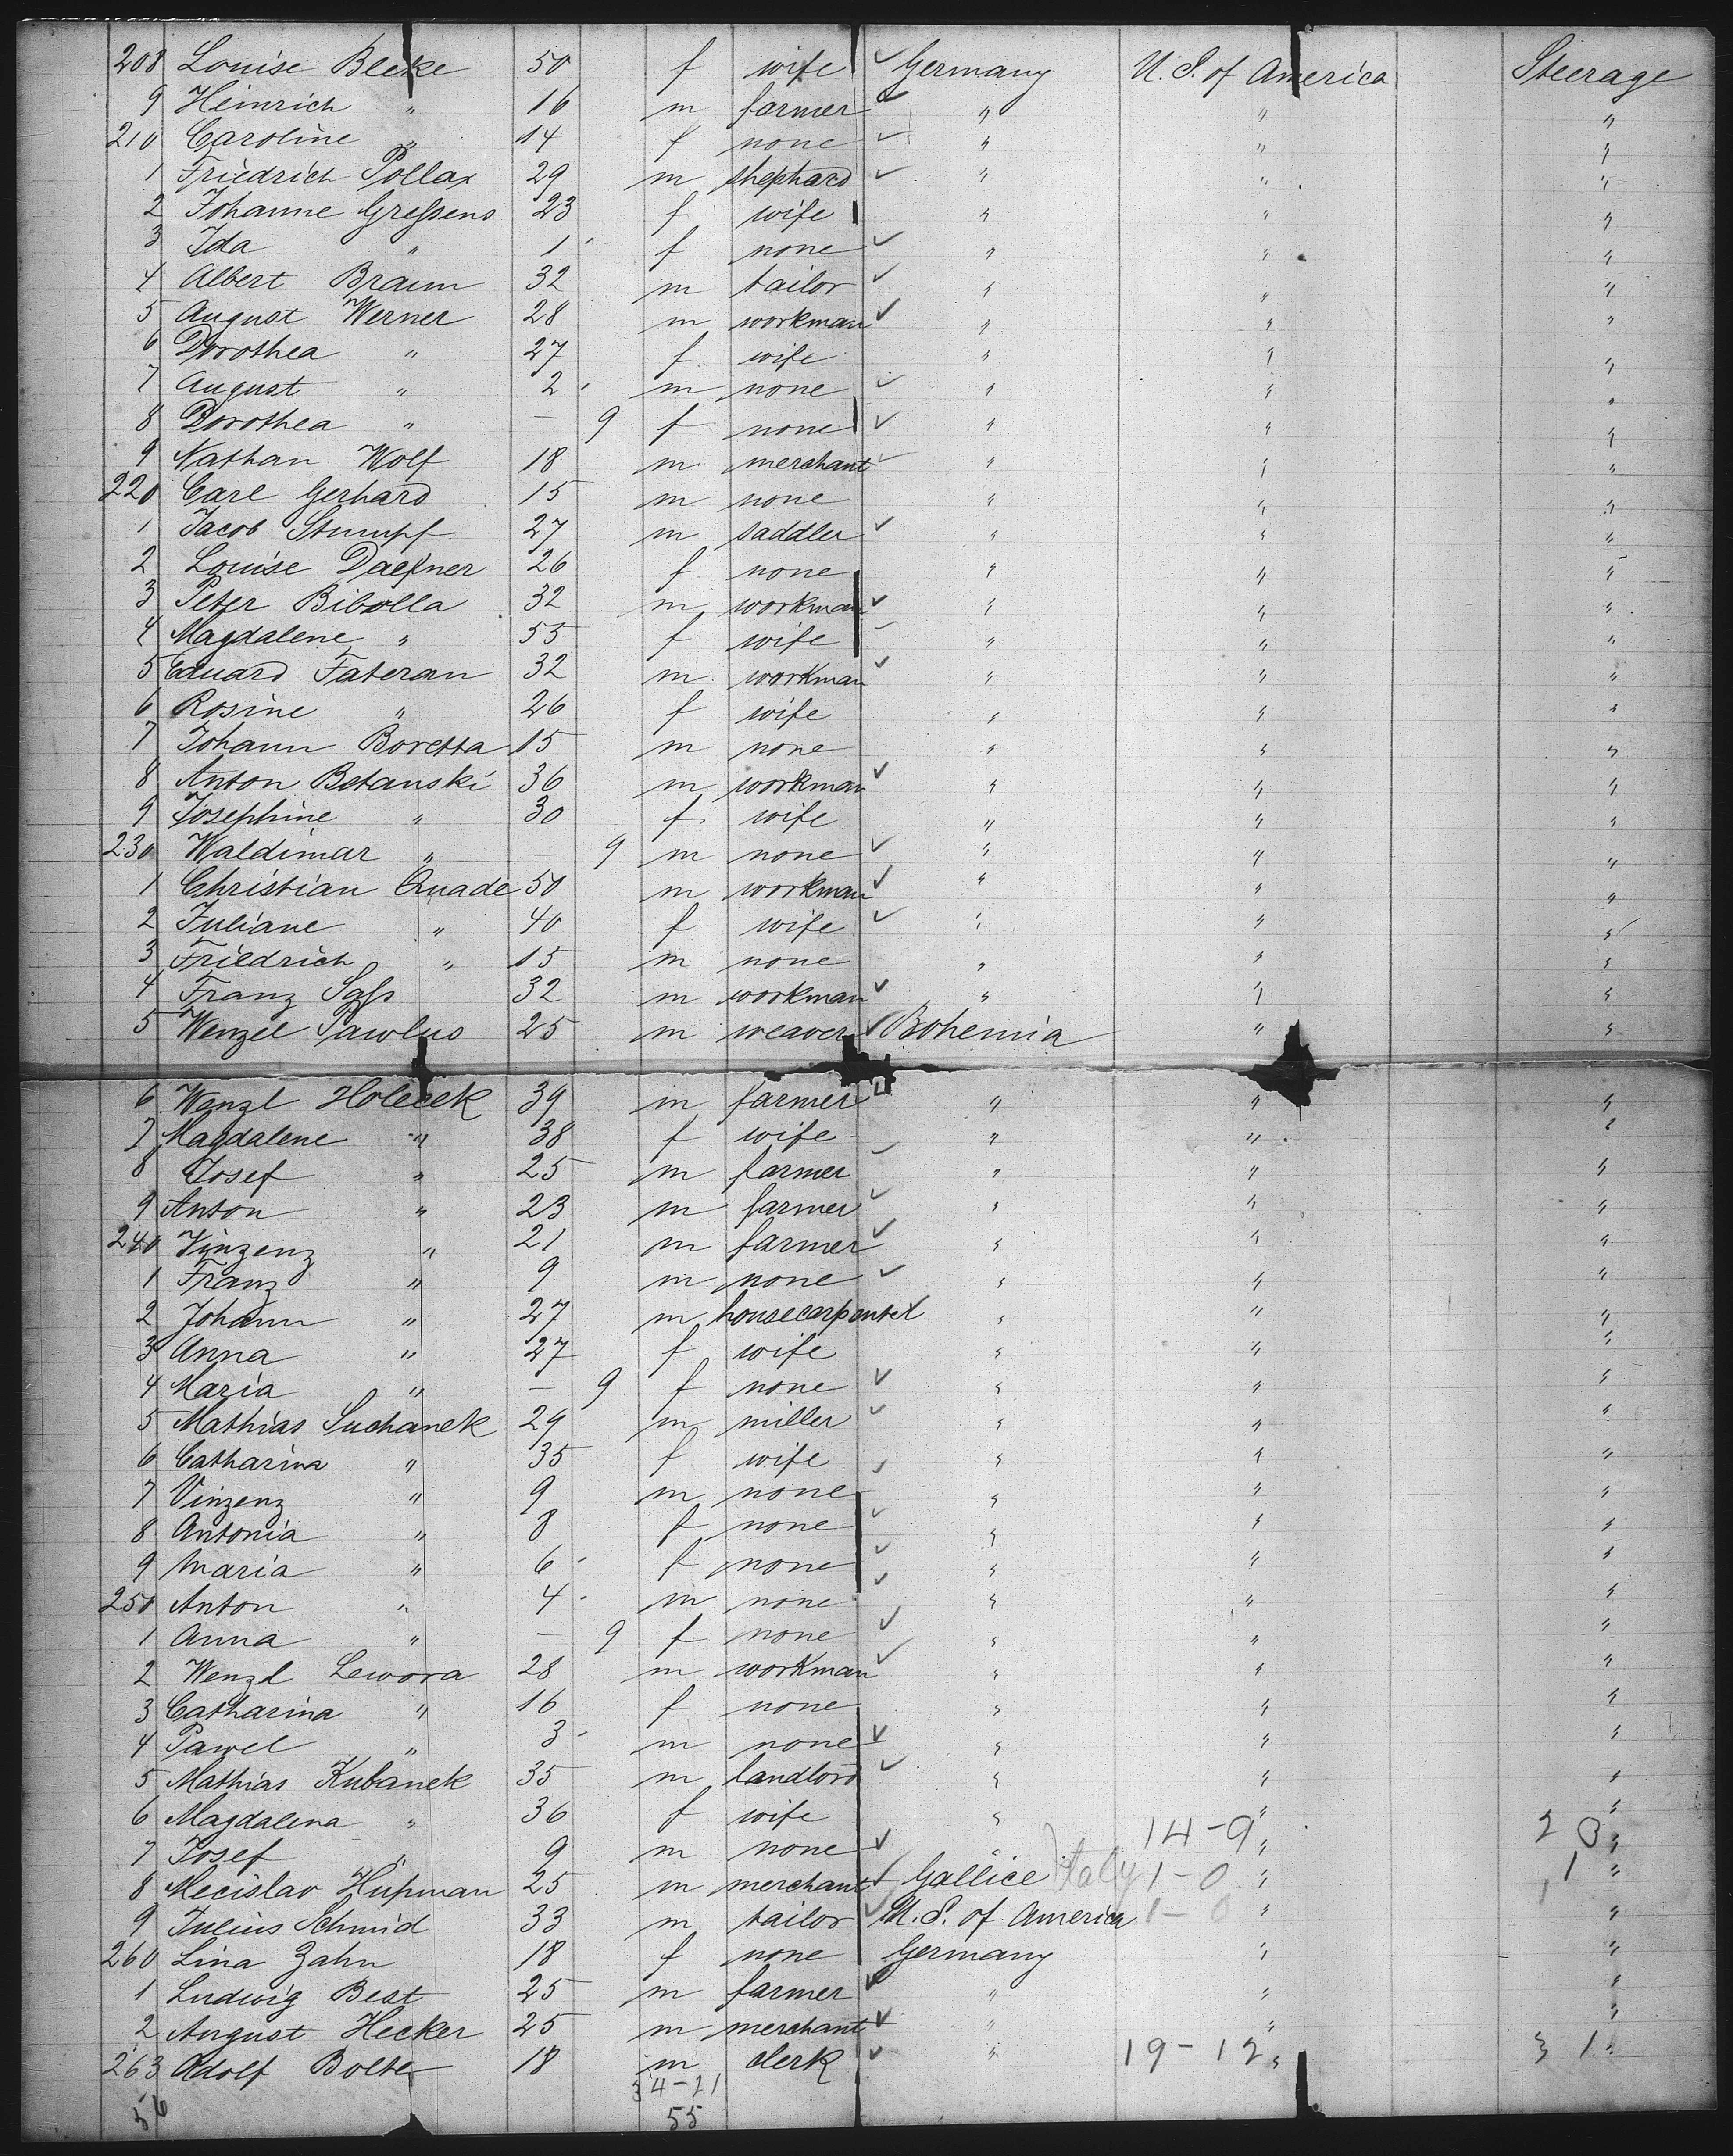 208 Louise Bleke 50 f wife ✓ Germany U. S. of America Steerage
9 Heinrich " 16 m farmer ✓ " " "
210 Caroline " 14 f none ✓ " " "
1 Friedrich Pollax 29 m shephard ✓ " " "
2 Johanne Greſsens 23 f wife " " "
3 Ida " 1 f none ✓ " " "
4 Albert Braun 32 m tailor ✓ " " "
5 August Werner 28 m workman ✓ " " "
6 Dorothea " 27 f wife " " "
7 August " 2 m none ✓ " " "
8 Dorothea " — 9 f none ✓ " " "
9 Nathan Wolf 18 m merchant ✓ " " "
220 Carl Gerhard 15 m none " " "
1 Jacob Stumpf 27 m saddler ✓ " " "
2 Louise 26 f none " " "
3 Peter Bibolla 32 m workman ✓ " " "
4 Magdalene " 55 f wife ✓ " " "
5 Eduard Fateran 32 m workman ✓ " " "
6 Rosine " 26 f wife " " "
7 Johann Boretta 15 m none " " "
8 Anton Betanski 36 m workman ✓ " " "
9 Josephine " 30 f wife " " "
230 Waldimar " — 9 m none ✓ " " "
1 Christian Quade 50 m workman ✓ " " "
2 Juliane " 40 f wife ✓ " " "
3 Friedrich " 15 m none " " "
4 Franz Saſs 32 m workman ✓ " " "
5 Wenzel Pawlus 25 m weaver ✓ Bohemia " "
6 Wenzl Holecek 39 m farmer ✓ " " "
7 Magdalene " 38 f wife " " "
8 Josef " 25 m farmer ✓ " " "
9 Anton " 23 m farmer ✓ " " "
240 Vinzenz " 21 m farmer ✓ " " "
1 Franz " 9 m none ✓ " " "
2 Johann " 27 m housecarpenter ✓ " " "
3 Anna " 27 f wife " " "
4 Maria " — 9 f none ✓ " " "
5 Mathias Suchanek 29 m miller ✓ " " "
6 Catharina " 35 f wife ✓ " " "
7 Vinzenz " 9 m none " " "
8 Antonia " 8 f none ✓ " " "
9 Maria " 6 f none ✓ " " "
250 Anton " 4 m none ✓ " " "
1 Anna " — 9 f none ✓ " " "
2 Wenzl Lewora 28 m workman ✓ " " "
3 Catharina " 16 f none " " "
4 Pawel " 3 m none ✓ " " "
5 Mathias Kubanek 35 m landlord ✓ " " "
6 Magdalena " 36 f wife " " "
7 Josef " 9 m none ✓ " 14-9 " 23 "
8 Mecislav Hupman 25 m merchant ✓ Gallice Italy 1-0 " 1 "
9 Julius Schmid 33 m tailor ✓ U. S. of America 1-0 " 1 "
260 Lina Zahn 18 f none Germany " "
1 Ludwig Best 25 m farmer ✓ " " "
2 August Hecker 25 m merchant ✓ " " "
263 Adolf Bolte 18 m clerk ✓ " 19-12 " 31 "
34-21
56 55